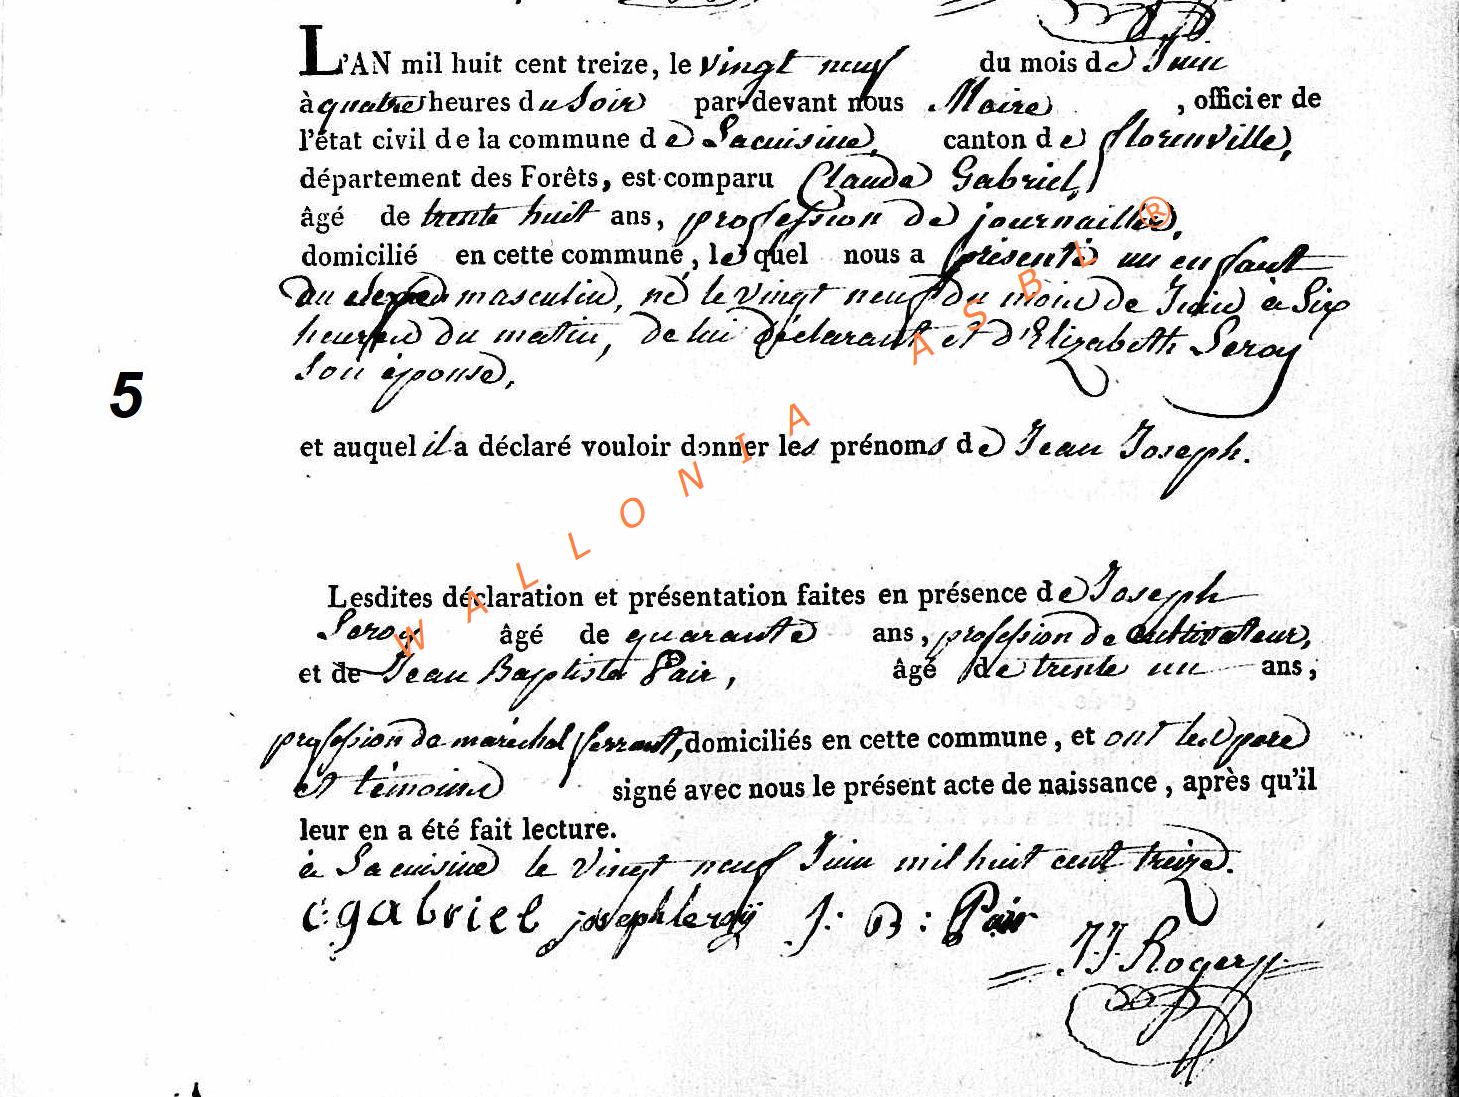 L'AN mil huit cent treize, le vingt neuf du mois de Juin
à quatre heures du Soir par-devant nous Maire, officier de
l'état civil de la commune de Lacuisine, canton de florenville,
département des Forêts, est comparu Claude Gabriel,
âgé de trente huit ans, profession de journaillier,
domicilié en cette commune, lequel nous a présenté un enfant
du sexe masculin, né le vingt neuf du mois de Juin à Six
heures du matin, de lui déclarant et d'Elizabeth Leroy
Son épouse,
5
et auquel il a déclaré vouloir donner les prénoms de Jean Joseph.
WALLONIA ASBL ®
Lesdites déclaration et présentation faites en présence de Joseph
Leroy âgé de quarante ans, profession de cultivateur,
et de Jean Baptiste Pair, âgé de trente un ans,
profession de maréchal ferrant, domiciliés en cette commune, et ont les père
et témoins signé avec nous le présent acte de naissance, après qu'il
leur en a été fait lecture.
à Lacuisine le vingt neuf Juin mil huit cent treize.
c: gabriel joseph leroÿ J: B: Pair
JJ Rogery